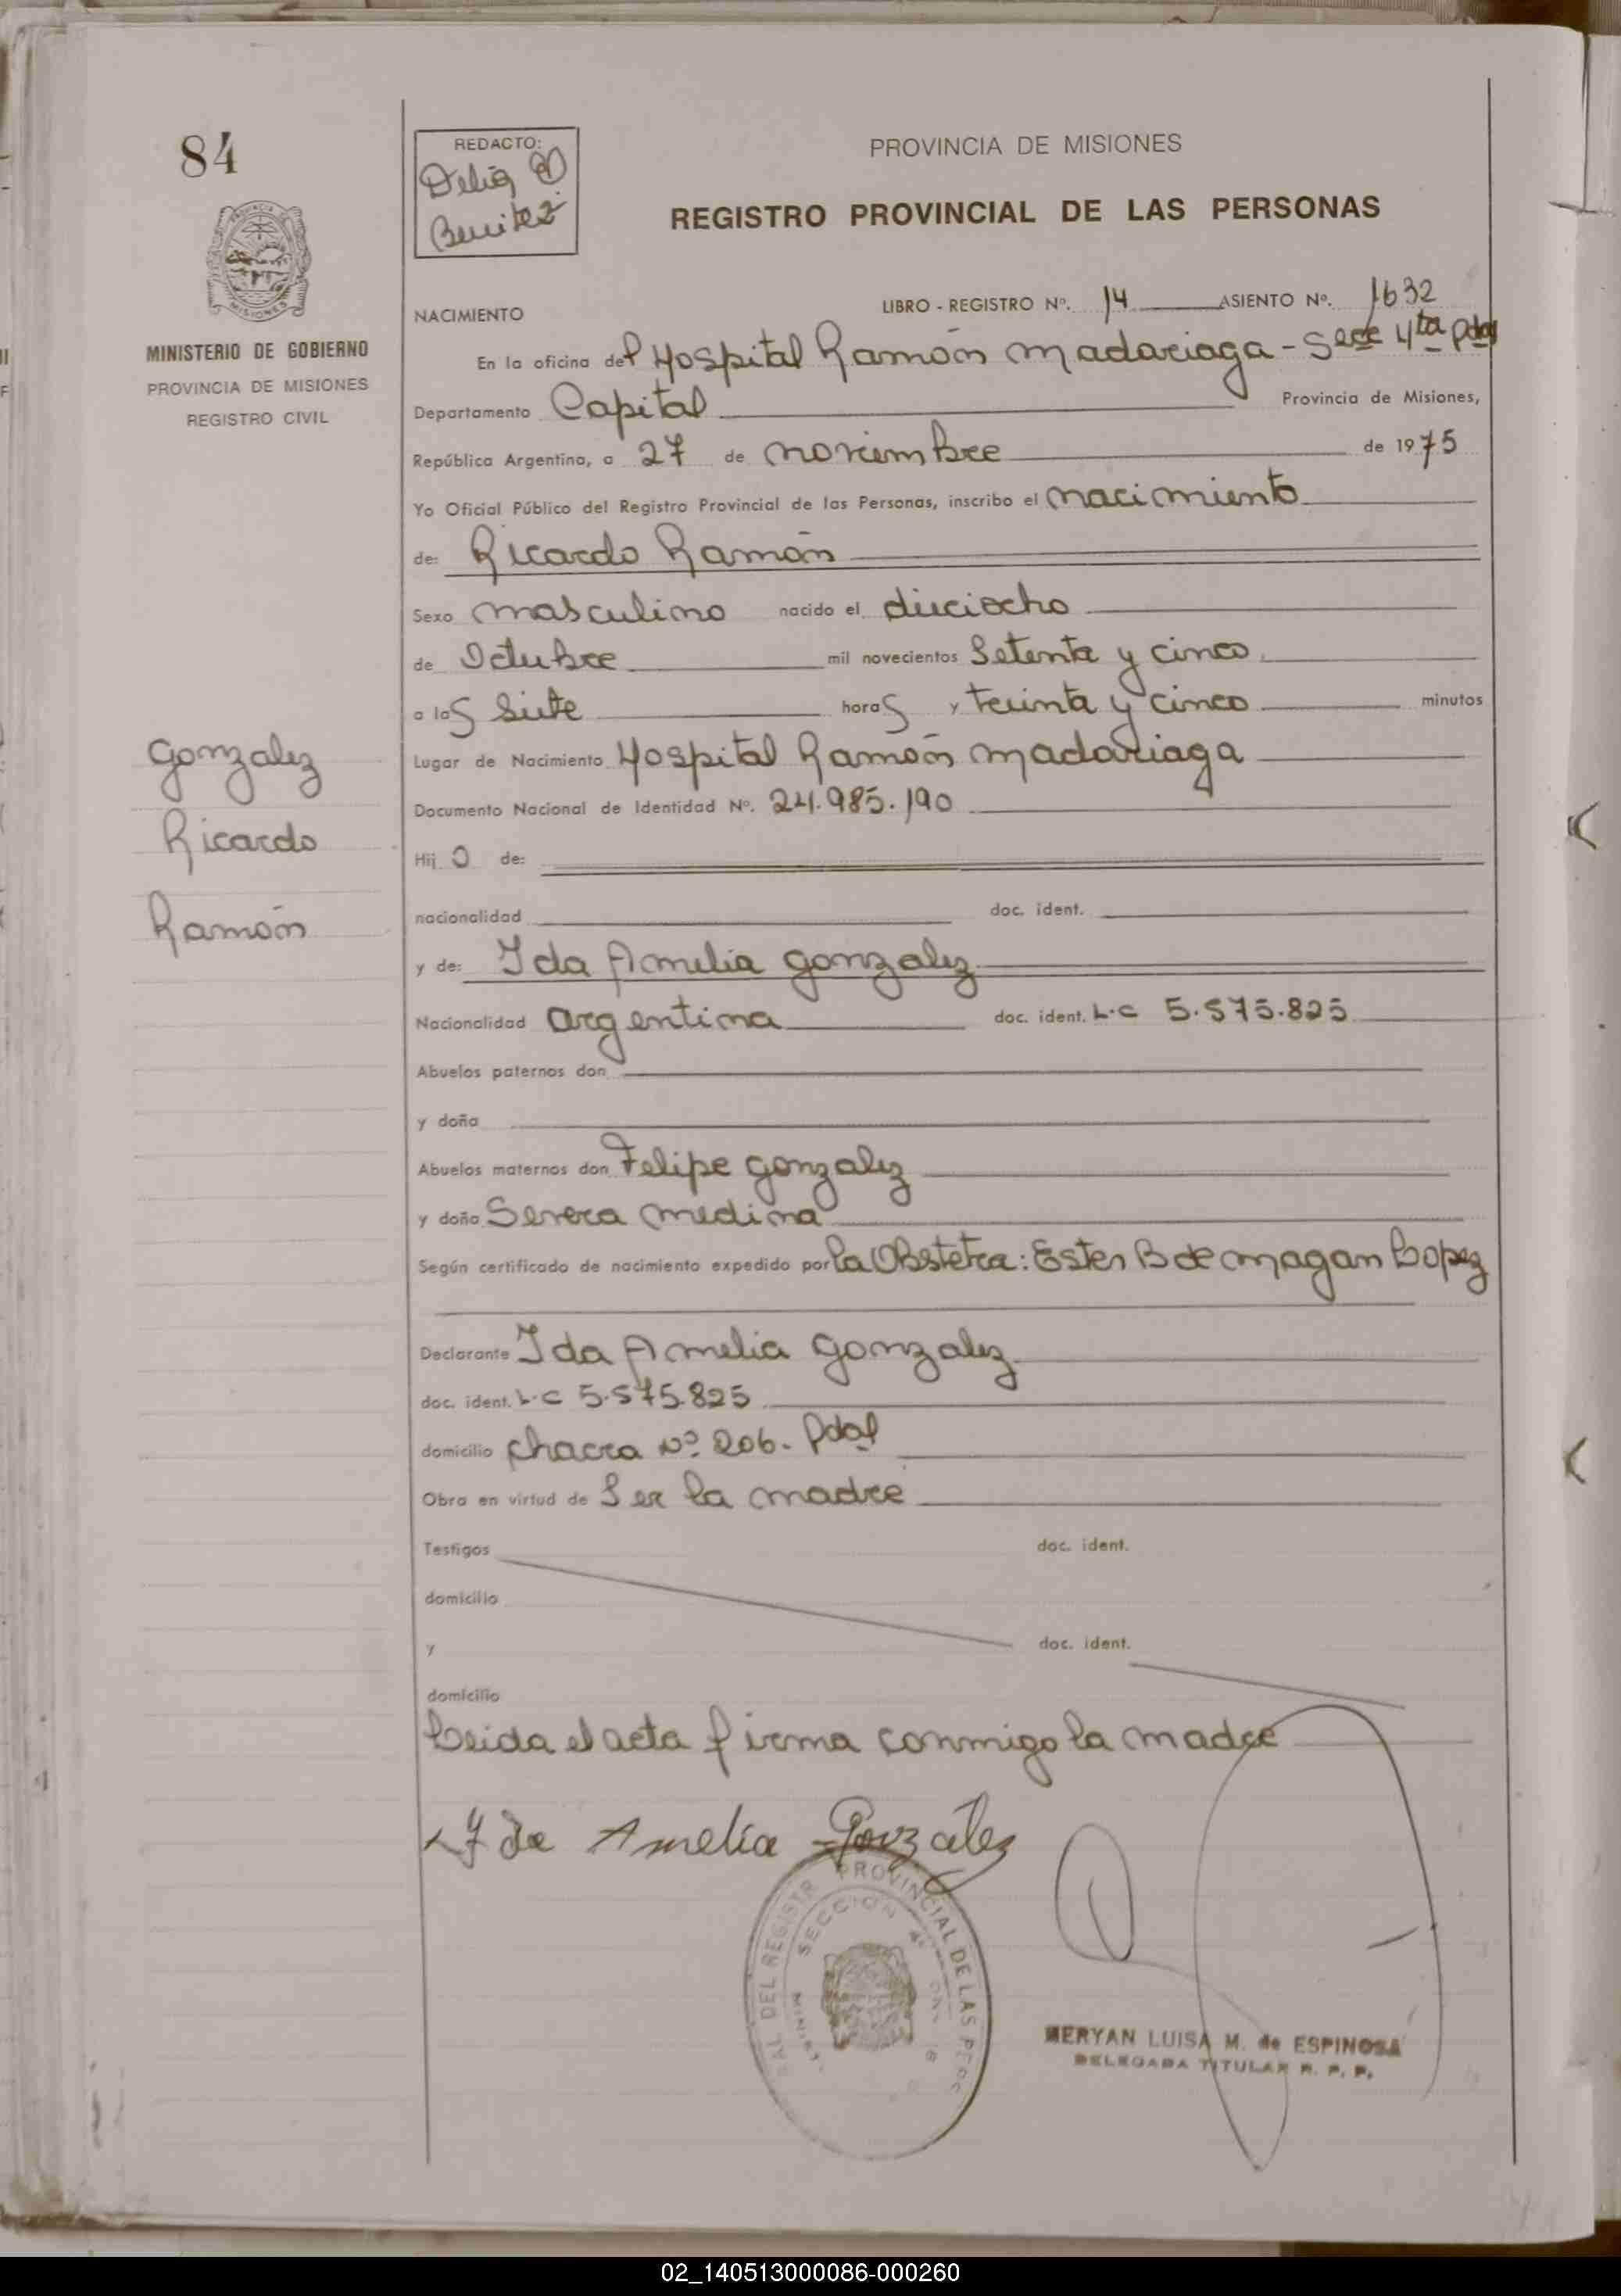 84
REDACTO:
Delia
Benitez
PROVINCIA DE MISIONES
REGISTRO PROVINCIAL DE LAS PERSONAS
MINISTERIO DE GOBIERNO
PROVINCIA DE MISIONES
REGISTRO CIVIL
NACIMIENTO
LIBRO - REGISTRO Nº. 14 ASIENTO Nº. 1632
En la oficina del Hospital Ramón Madariaga - Secc 4ta Pdas
Departamento Capital Provincia de Misiones,
República Argentina, a 27 de noviembre de 1975
Yo Oficial Público del Registro Provincial de las Personas, inscribo el nacimiento
de: Ricardo Ramón
Sexo masculino nacido el dieciocho
de Octubre mil novecientos Setenta y cinco
a las Siete horas y treinta y cinco minutos
Gonzalez
Ricardo
Ramón
Lugar de Nacimiento Hospital Ramón Madariaga
Documento Nacional de Identidad Nº. 24.985.190
Hijo de:
nacionalidad doc. ident.
y de: Ida Amelia Gonzalez
Nacionalidad argentina doc. ident. L.C 5.575.825
Abuelos paternos don
y doña
Abuelos maternos don Felipe Gonzalez
y doña Severa Medina
Según certificado de nacimiento expedido por la Obstetra: Ester B de Magan Lopez
Declarante Ida Amelia Gonzalez
doc. ident. L.C 5.575.825
domicilio Chacra Nº. 206. Pdas
Obra en virtud de Ser la madre
Testigos doc. ident.
domicilio
y doc. ident.
domicilio
Leida el acta firma conmigo la madre
Ida Amelia Gonzalez
DEL REGISTR PROVINCIAL DE LAS PERS
SECCION 4ª
MERYAN LUISA M. de ESPINOSA
DELEGADA TITULAR R. P. P.
02_140513000086-000260